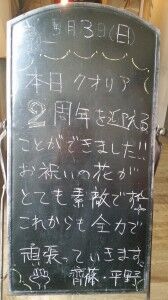 月3日(日)
本日クオリア
2周年を迎える
ことができました!!
お祝いの花が
とても素敵で
これからも全力で
頑張っていきます
齊藤・平野